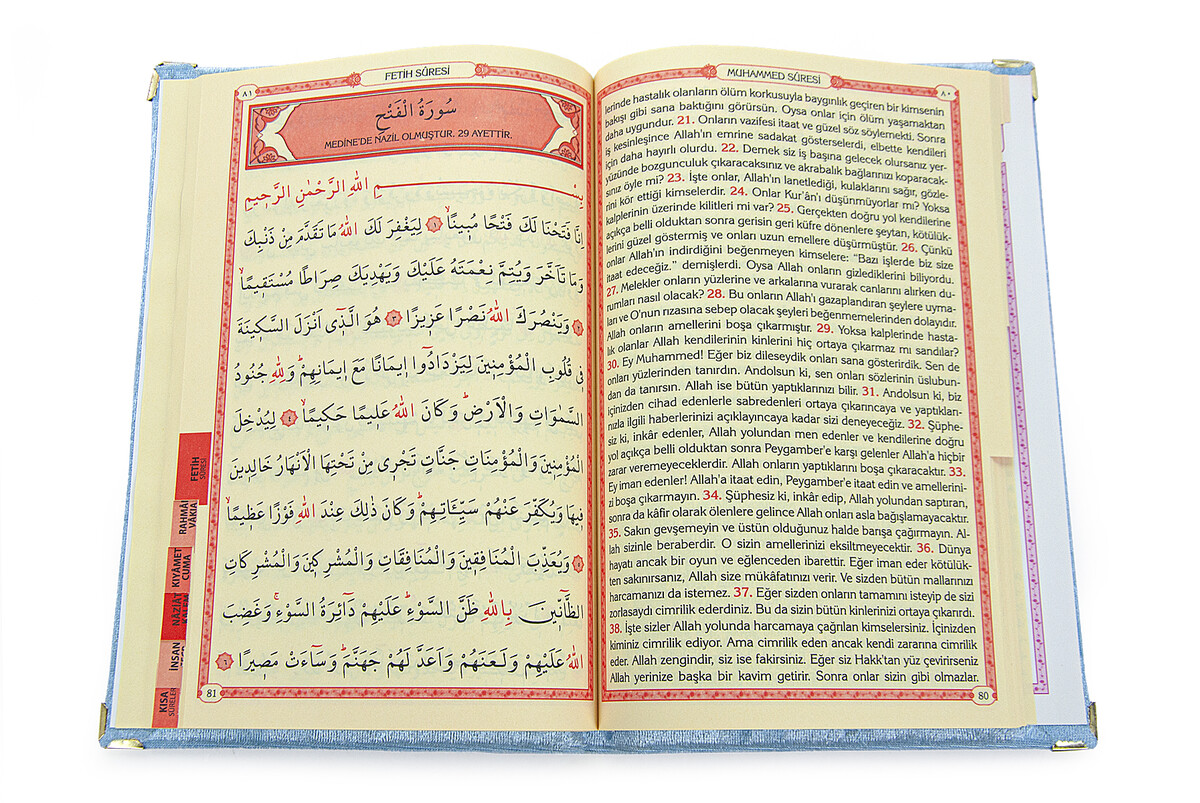 MUHAMMED SÛRESİ
٨٠
lerinde hastalık olanların ölüm korkusuyla baygınlık geçiren bir kimsenin
bakışı gibi sana baktığını görürsün. Oysa onlar için ölüm yaşamaktan
daha uygundur. 21. Onların vazifesi itaat ve güzel söz söylemekti. Sonra
iş kesinleşince Allah'ın emrine sadakat gösterselerdi, elbette kendileri
için daha hayırlı olurdu. 22. Demek siz iş başına gelecek olursanız yer-
yüzünde bozgunculuk çıkaracaksınız ve akrabalık bağlarınızı koparacak-
sınız öyle mi? 23. İşte onlar, Allah'ın lanetlediği, kulaklarını sağır, gözle-
rini kör ettiği kimselerdir. 24. Onlar Kur'ân'ı düşünmüyorlar mı? Yoksa
kalplerinin üzerinde kilitleri mi var? 25. Gerçekten doğru yol kendilerine
açıkça belli olduktan sonra gerisin geri küfre dönenlere şeytan, kötülük-
lerini güzel göstermiş ve onları uzun emellere düşürmüştür. 26. Çünkü
onlar Allah'ın indirdiğini beğenmeyen kimselere: "Bazı işlerde biz size
itaat edeceğiz." demişlerdi. Oysa Allah onların gizlediklerini biliyordu.
27. Melekler onların yüzlerine ve arkalarına vurarak canlarını alırken du-
rumları nasıl olacak? 28. Bu onların Allah'ı gazaplandıran şeylere uyma-
ları ve O'nun rızasına sebep olacak şeyleri beğenmemelerinden dolayıdır.
Allah onların amellerini boşa çıkarmıştır. 29. Yoksa kalplerinde hasta-
lık olanlar Allah kendilerinin kinlerini hiç ortaya çıkarmaz mı sandılar?
30. Ey Muhammed! Eğer biz dileseydik onları sana gösterirdik. Sen de
onları yüzlerinden tanırdın. Andolsun ki, sen onları sözlerinin üslubun-
dan da tanırsın. Allah ise bütün yaptıklarınızı bilir. 31. Andolsun ki, biz
içinizden cihad edenlerle sabredenleri ortaya çıkarıncaya ve yaptıkları-
nızla ilgili haberlerinizi açıklayıncaya kadar sizi deneyeceğiz. 32. Şüphe-
siz ki, inkâr edenler, Allah yolundan men edenler ve kendilerine doğru
yol açıkça belli olduktan sonra Peygamber'e karşı gelenler Allah'a hiçbir
zarar veremeyeceklerdir. Allah onların yaptıklarını boşa çıkaracaktır. 33.
Ey iman edenler! Allah'a itaat edin, Peygamber'e itaat edin ve amellerini-
zi boşa çıkarmayın. 34. Şüphesiz ki, inkâr edip, Allah yolundan saptıran,
sonra da kâfir olarak ölenlere gelince Allah onları asla bağışlamayacaktır.
35. Sakın gevşemeyin ve üstün olduğunuz halde barışa çağırmayın. Al-
lah sizinle beraberdir. O sizin amellerinizi eksiltmeyecektir. 36. Dünya
hayatı ancak bir oyun ve eğlenceden ibarettir. Eğer iman eder kötülük-
ten sakınırsanız, Allah size mükâfatınızı verir. Ve sizden bütün mallarınızı
harcamanızı da istemez. 37. Eğer sizden onların tamamını isteyip de sizi
zorlasaydı cimrilik ederdiniz. Bu da sizin bütün kinlerinizi ortaya çıkarırdı.
38. İşte sizler Allah yolunda harcamaya çağrılan kimselersiniz. İçinizden
kiminiz cimrilik ediyor. Ama cimrilik eden ancak kendi zararına cimrilik
eder. Allah zengindir, siz ise fakirsiniz. Eğer siz Hakk'tan yüz çevirirseniz
Allah yerinize başka bir kavim getirir. Sonra onlar sizin gibi olmazlar.
80
FETİH SÛRESİ
٨١
سُورَةُ الْفَتْحِ
MEDİNE'DE NAZİL OLMUŞTUR. 29 AYETTİR.
بِسْمِ اللهِ الرَّحْمٰنِ الرَّحِيمِ
اِنَّا فَتَحْنَا لَكَ فَتْحًا مُبِينًاۙ ١ لِيَغْفِرَ لَكَ اللهُ مَا تَقَدَّمَ مِنْ ذَنْبِكَ
وَمَا تَاَخَّرَ وَيُتِمَّ نِعْمَتَهُ عَلَيْكَ وَيَهْدِيَكَ صِرَاطًا مُسْتَقِيمًاۙ
٢ وَيَنْصُرَكَ اللهُ نَصْرًا عَزِيزًا ٣ هُوَ الَّذِٓى اَنْزَلَ السَّكِينَةَ
فِى قُلُوبِ الْمُؤْمِنِينَ لِيَزْدَادُٓوا اِيمَانًا مَعَ اِيمَانِهِمْۜ وَلِلّٰهِ جُنُودُ
السَّمٰوَاتِ وَالْاَرْضِۜ وَكَانَ اللهُ عَلِيمًا حَكِيمًاۙ ٤ لِيُدْخِلَ
الْمُؤْمِنِينَ وَالْمُؤْمِنَاتِ جَنَّاتٍ تَجْرِى مِنْ تَحْتِهَا الْاَنْهَارُ خَالِدِينَ
فِيهَا وَيُكَفِّرَ عَنْهُمْ سَيِّـَٔاتِهِمْۜ وَكَانَ ذٰلِكَ عِنْدَ اللهِ فَوْزًا عَظِيمًاۙ
٥ وَيُعَذِّبَ الْمُنَافِقِينَ وَالْمُنَافِقَاتِ وَالْمُشْرِكِينَ وَالْمُشْرِكَاتِ
الظَّٓانِّينَ بِاللهِ ظَنَّ السَّوْءِۜ عَلَيْهِمْ دَٓائِرَةُ السَّوْءِۚ وَغَضِبَ
اللهُ عَلَيْهِمْ وَلَعَنَهُمْ وَاَعَدَّ لَهُمْ جَهَنَّمَۜ وَسَٓاءَتْ مَصِيرًا ٦
81
FETİH
SÛRESİ
RAHMÂN
VÂKIA
KIYÂMET
CUMA
NÂZİÂT
İNSAN
KISA
SÛRELER